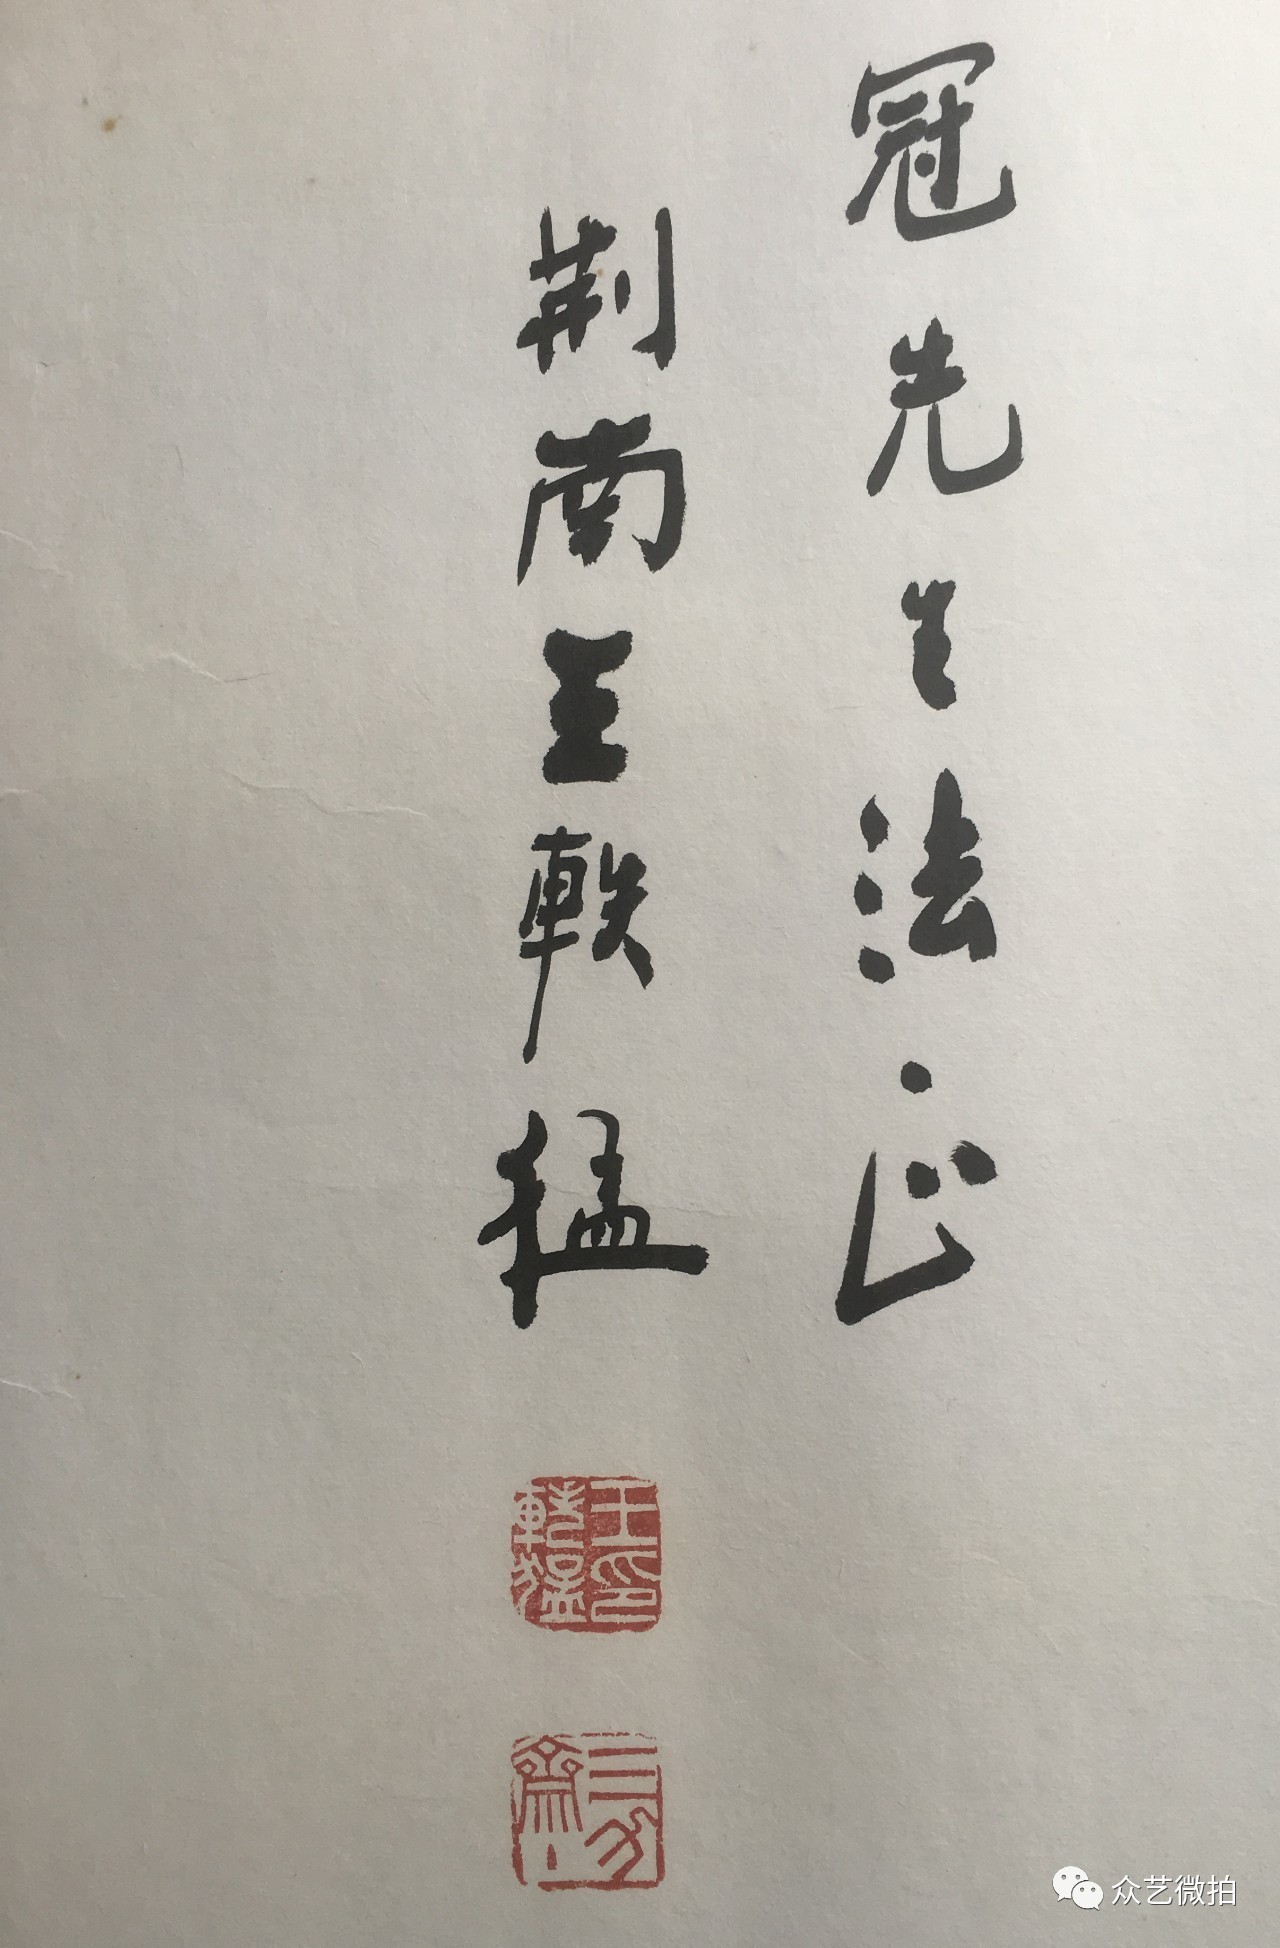 冠先生法正
荆南王軼猛
王印軼猛
众艺微拍